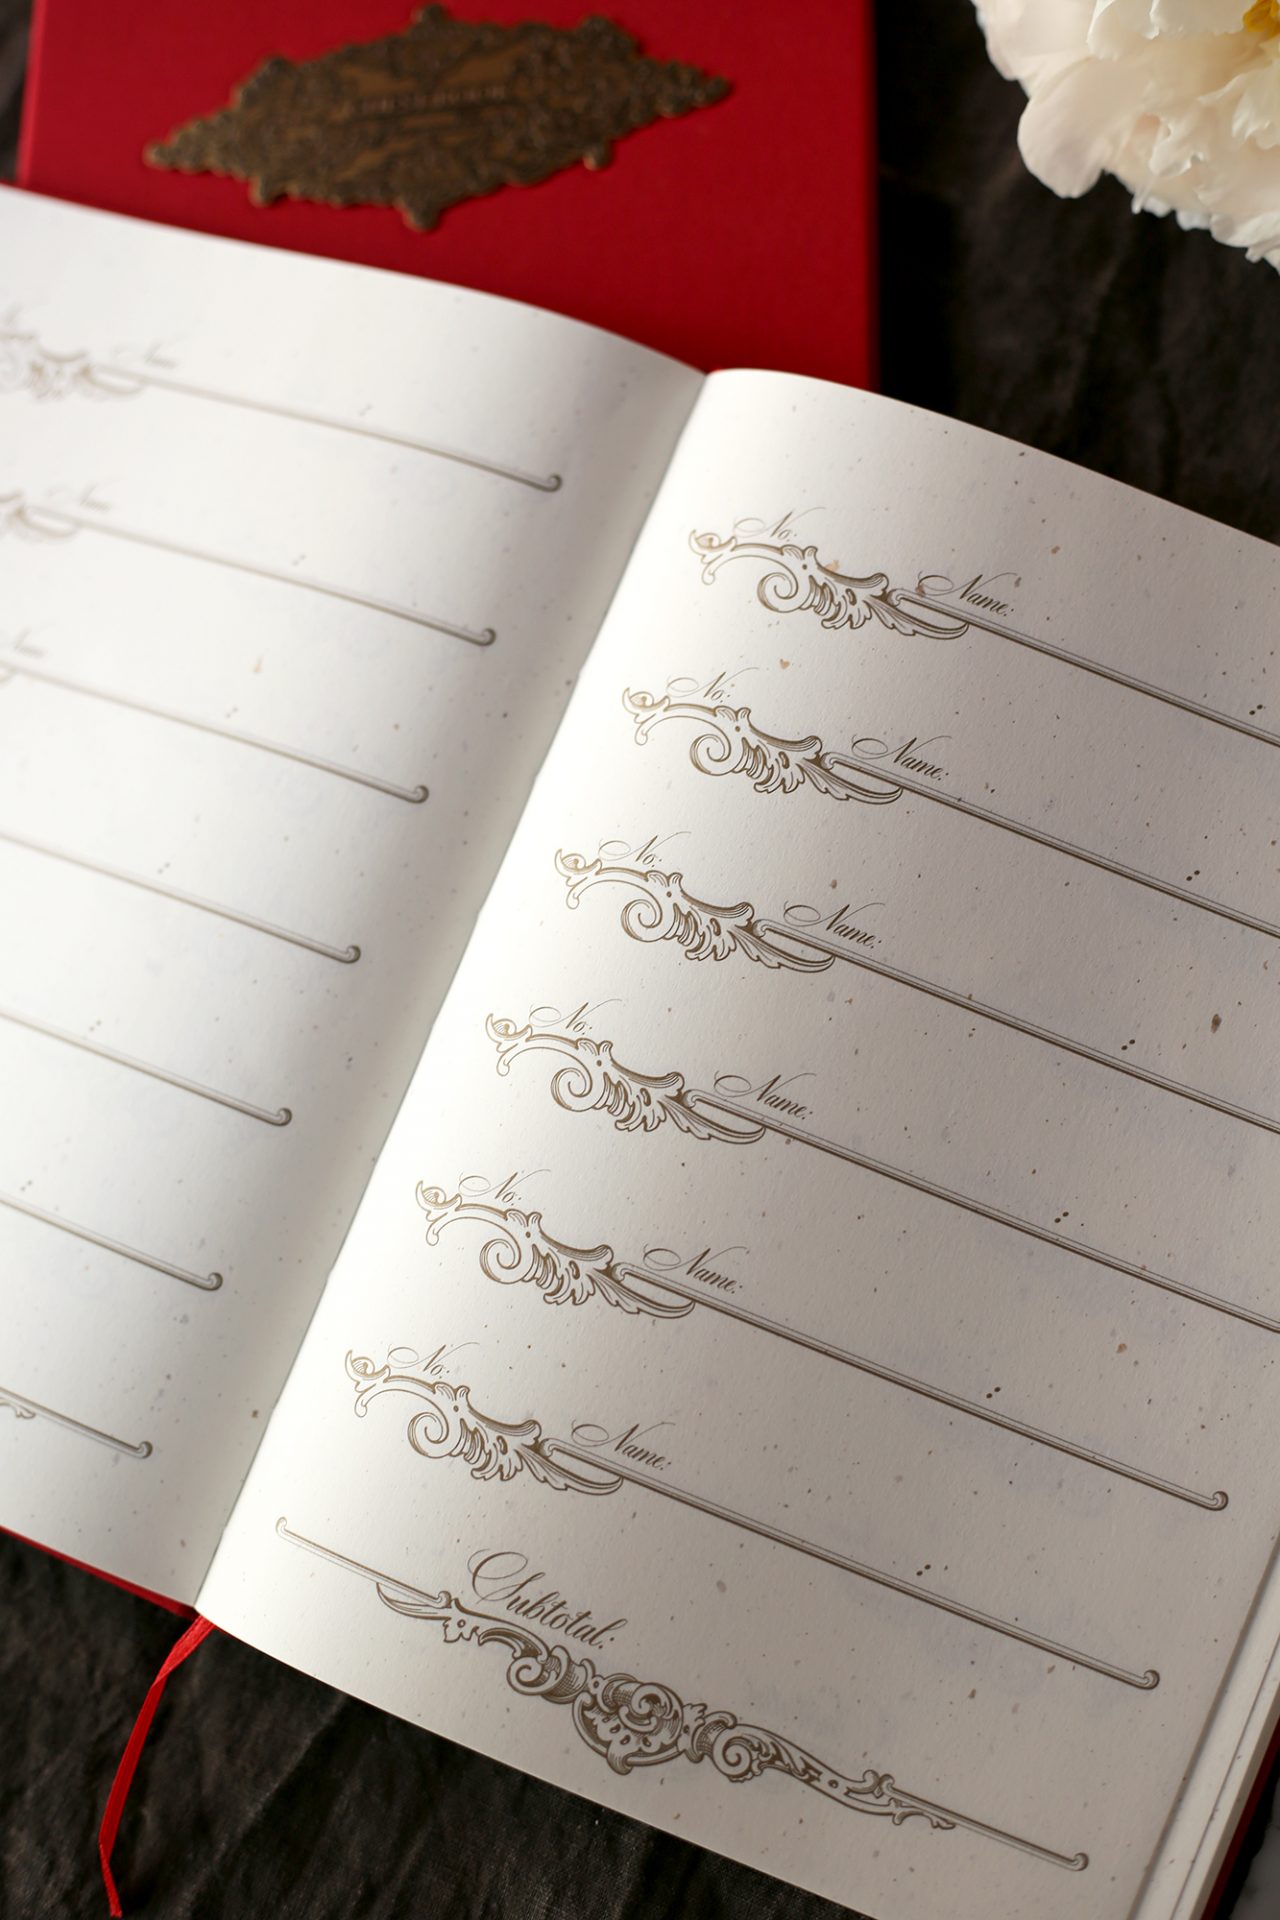 Name:
Name:
Name:
No: Name:
No: Name:
No: Name:
No: Name:
No: Name:
No: Name:
Subtotal: